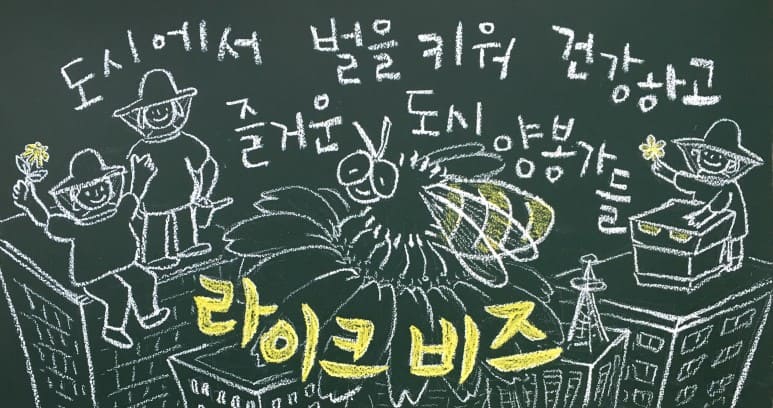 도시에서 벌을 키워 건강하고
즐거운 도시 양봉가들
라이크 비즈